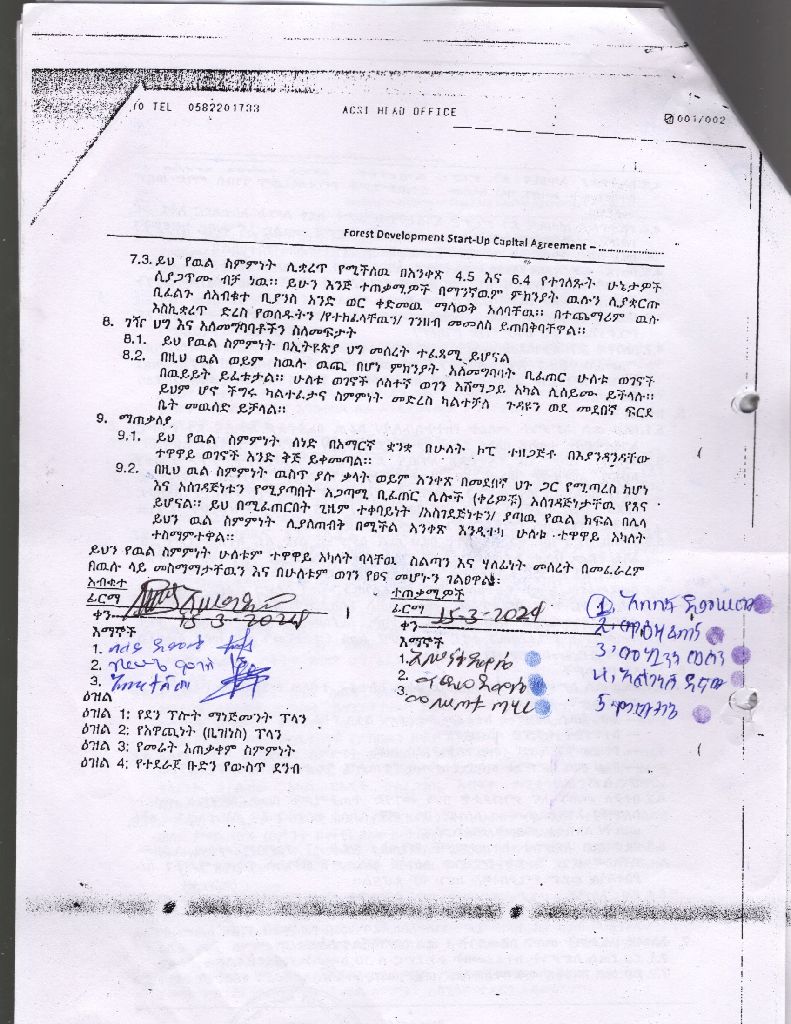 TO TEL 0582201733 ACSI HEAD OFFICE 001/002
Forest Development Start-Up Capital Agreement – ....................
7.3. ይህ የዉል ስምምነት ሊቋረጥ የሚችለዉ በአንቀጽ 4.5 እና 6.4 የተገለጹት ሁኔታዎች
ሲያጋጥሙ ብቻ ነዉ። ይሁን እንጅ ተጠቃሚዎች በማንኛዉም ምክንያት ዉሉን ሊያቋርጡ
ቢፈልጉ ለአብቁተ ቢያንስ አንድ ወር ቀድመዉ ማሳወቅ አለባቸዉ። በተጨማሪም ዉሉ
እስኪቋረጥ ድረስ የወሰዱትን /የተከፈላቸዉን/ ገንዘብ መመለስ ይጠበቅባቸዋል።
8. ገዥ ህግ እና አለመግባባቶችን ስለመፍታት
8.1. ይህ የዉል ስምምነት በኢትዩጵያ ህግ መሰረት ተፈጻሚ ይሆናል
8.2. በዚህ ዉል ወይም ከዉሉ ዉጪ በሆነ ምክንያት አለመግባባት ቢፈጠር ሁለቱ ወገኖች
በዉይይት ይፈቱታል። ሁለቱ ወገኖች ሶስተኛ ወገን አሸማጋይ አካል ሊሰይሙ ይችላሉ።
ይህም ሆኖ ችግሩ ካልተፈታና ስምምነት መድረስ ካልተቻለ ጉዳዩን ወደ መደበኛ ፍርድ
ቤት መዉሰድ ይቻላል።
9. ማጠቃለያ
9.1. ይህ የዉል ስምምነት ሰነድ በአማርኛ ቋንቋ በሁለት ኮፒ ተዘጋጅቶ በእያንዳንዳቸው
ተዋዋይ ወገኖች አንድ ቅጅ ይቀመጣል።
9.2. በዚህ ዉል ስምምነት ዉስጥ ያሉ ቃላት ወይም አንቀጽ በመደበኛ ህጉ ጋር የሚጣረስ ከሆነ
እና አስገዳጅነቱን የሚያጣበት አጋጣሚ ቢፈጠር ሌሎች (ቀሪዎች) አስገዳጅነታቸዉ የጸና
ይሆናል። ይህ በሚፈጠርበት ጊዜም ተቀባይነት /አስገደጅነቱን/ ያጣዉ የዉል ክፍል በሌላ
ይህን ዉል ስምምነት ሊያስጠብቅ በሚችል አንቀጽ እንዲተካ ሁለቱ ተዋዋይ አካላት
ተስማምተዋል።
ይህን የዉል ስምምነት ሁለቱም ተዋዋይ አካላት ባላቸዉ ስልጣን እና ሃላፊነት መሰረት በመፈራረም
በዉሉ ላይ መስማማታቸዉን እና በሁለቱም ወገን የፀና መሆኑን ገልፀዋል፡
አብቁተ ተጠቃሚዎች
ፊርማ ፊርማ
ቀን 15-3-2024 ቀን 15-3-2024
እማኞች እማኞች
1.
2.
3.
ዕዝል
ዕዝል 1: የደን ፕሎት ማነጅመንት ፕላን
ዕዝል 2: የአዋጪነት (ቢዝነስ) ፕላን
ዕዝል 3: የመሬት አጠቃቀም ስምምነት
ዕዝል 4: የተደራጀ ቡድን የውስጥ ደንብ